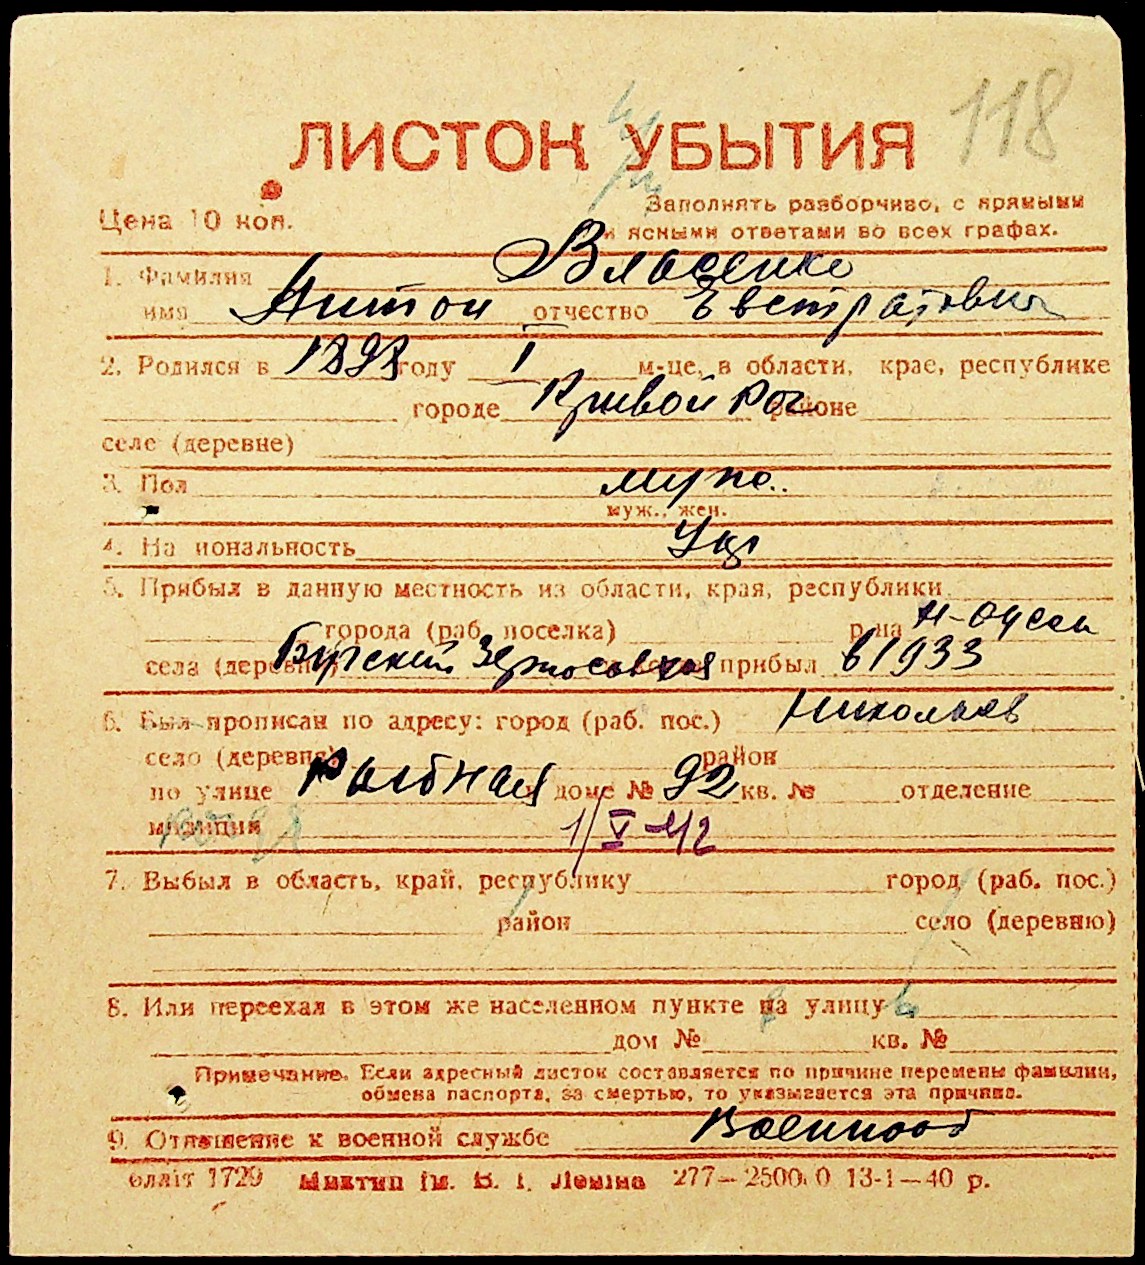 118
ЛИСТОК УБЫТИЯ
Цена 10 коп.
Заполнять разборчиво, с прямыми
и ясными ответами во всех графах.
1. Фамилия Власенко
имя Антон отчество Евстратович
2. Родился в 1893 году I м-це, в области, крае, республике
городе Кривой Рог районе
селе (деревне)
3. Пол муж.
муж., жен.
4. Национальность Укр
5. Прибыл в данную местность из области, края, республики
города (раб. поселка) р-на Н-Одесс
села (деревни) Бугский Зерносовхоз прибыл в 1933
6. Был прописан по адресу: город (раб. пос.) Николаев
село (деревня) район
по улице Рыбная в доме № 92 кв. № отделение
милиции 1/V-42
7. Выбыл в область, край, республику город (раб. пос.)
район село (деревню)
8. Или переехал в этом же населенном пункте на улицу
дом № кв. №
Примечание. Если адресный листок составляется по причине перемены фамилии,
обмена паспорта, за смертью, то указывается эта причина.
9. Отношение к военной службе Военнооб
блліт 1729 Миктип ім. В. І. Леніна 277—2500 0 13-1—40 р.